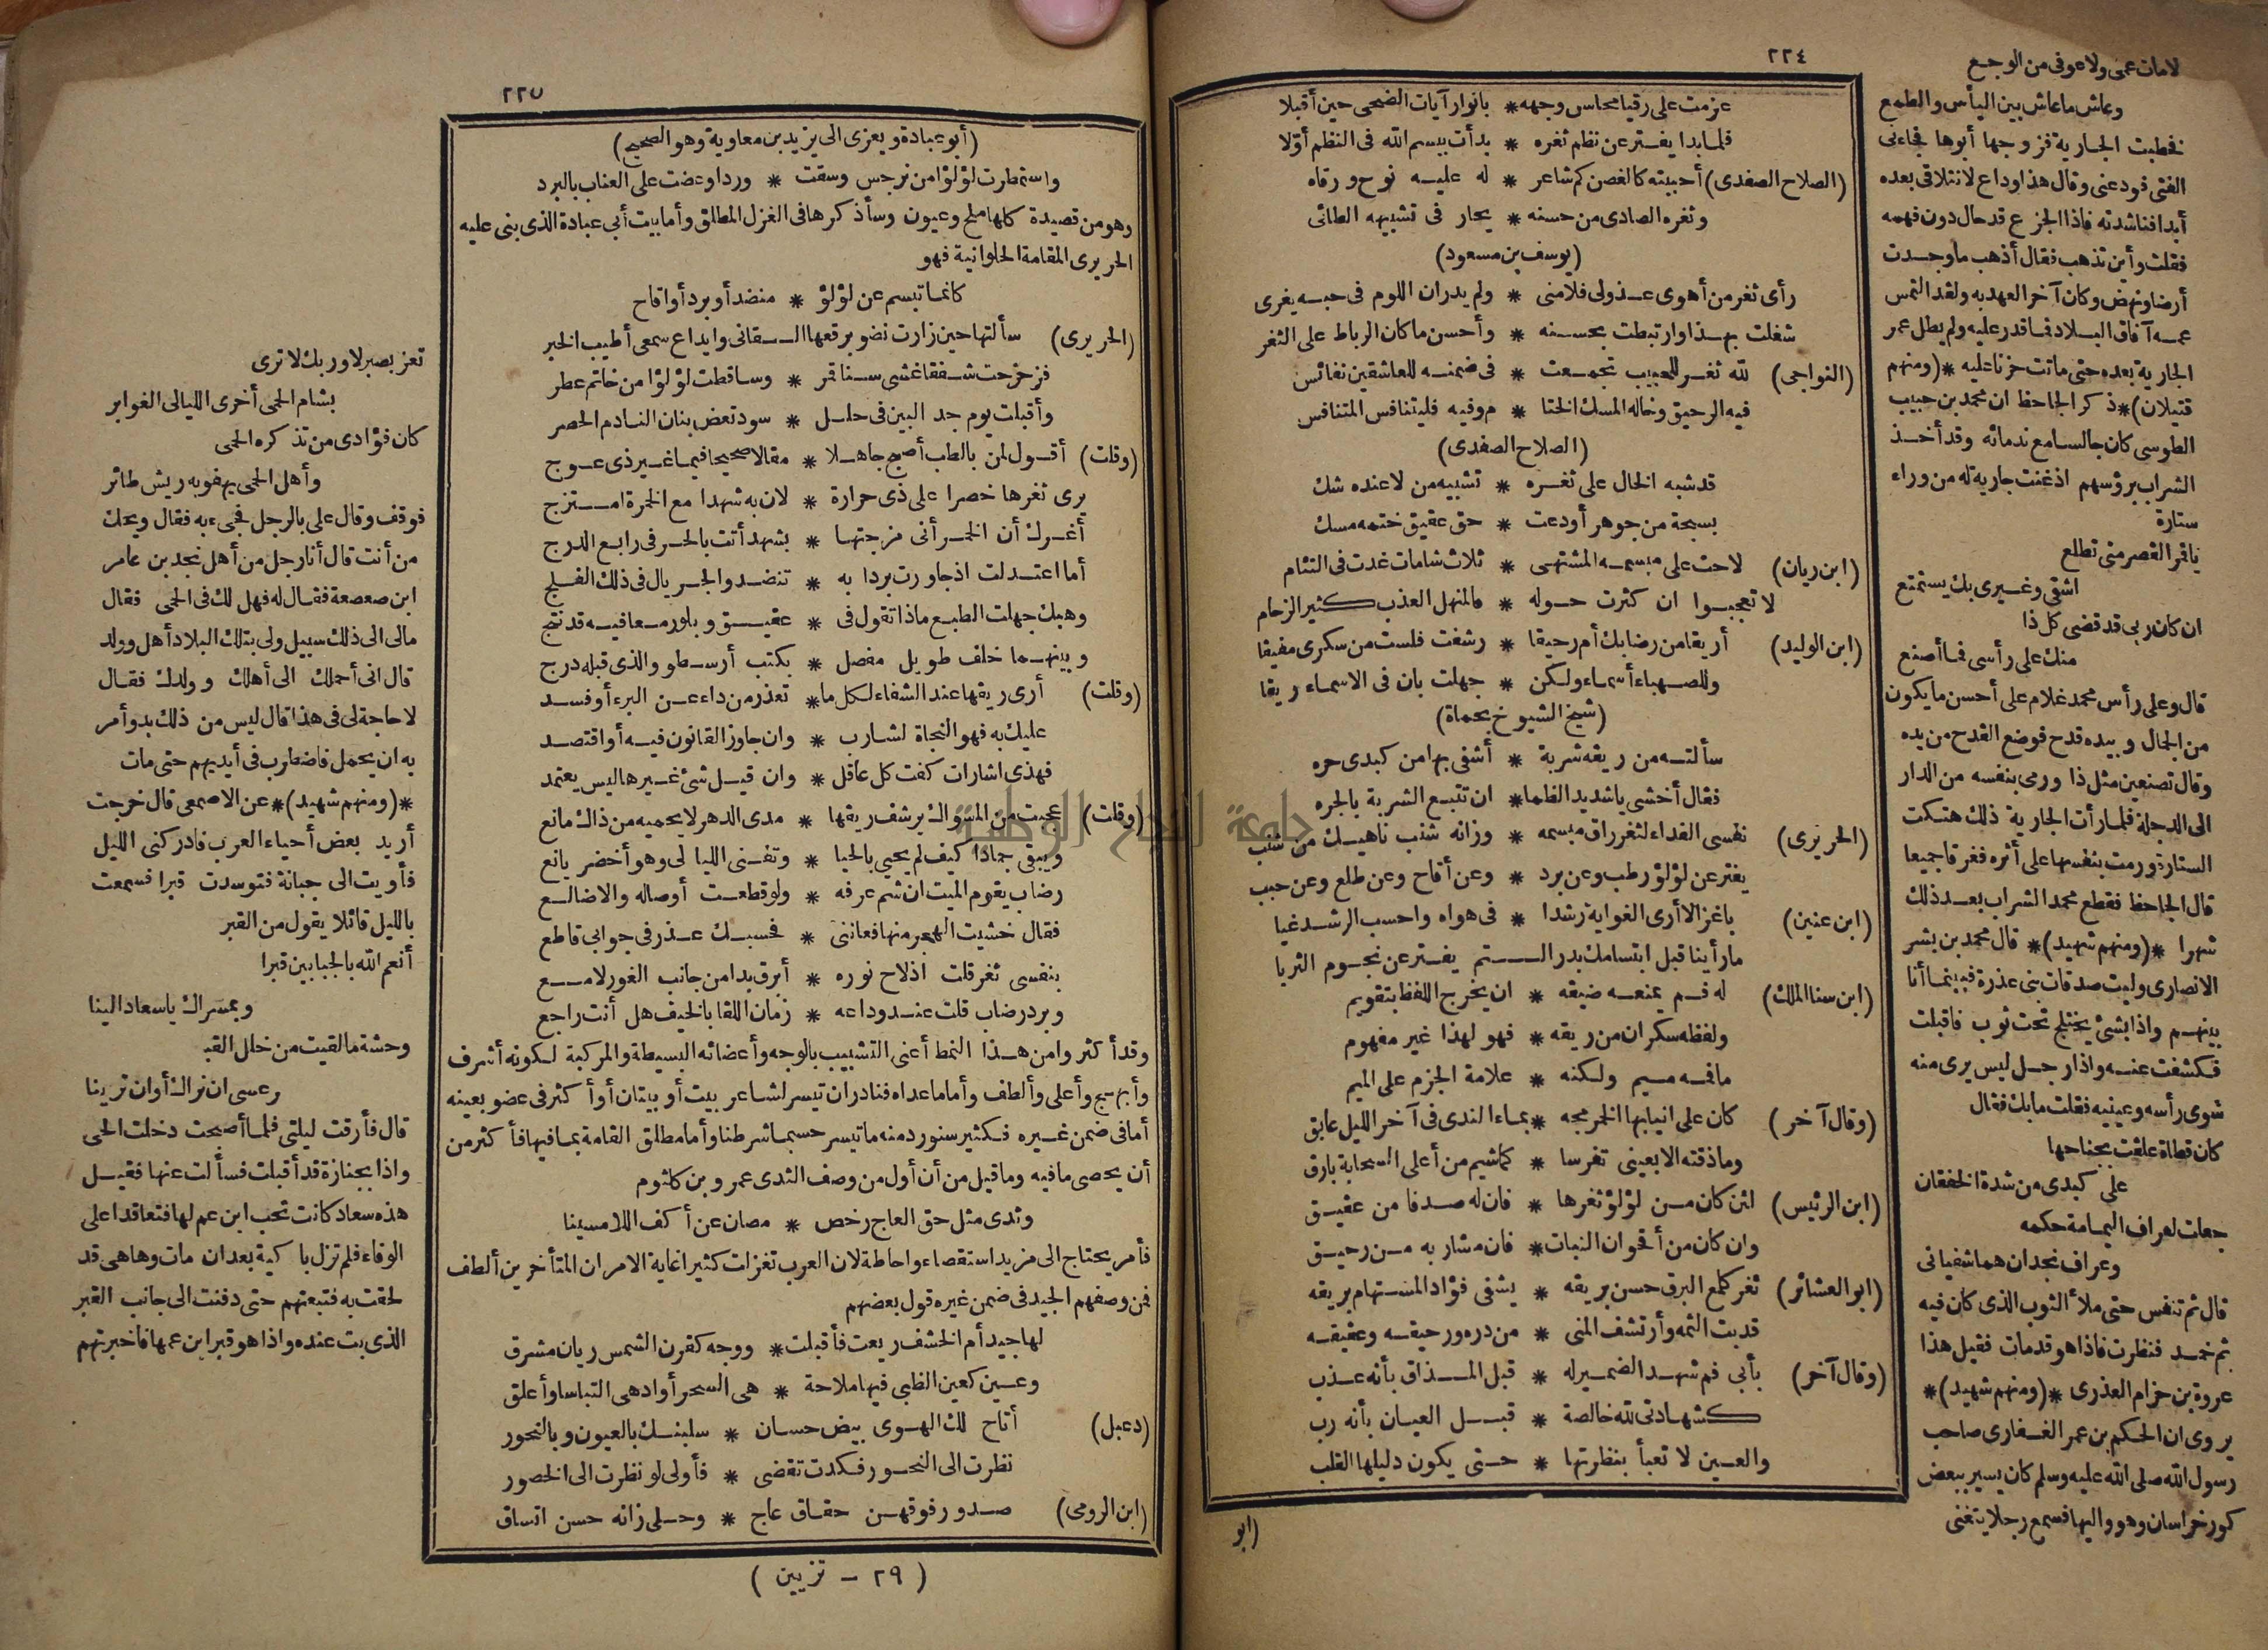 ٢٢٤
عزمت على رقيا محاسن وجهه * بانوار آيات الضحى حين أقبلا
فلما بدا يفتر عن نظم ثغره * بدأت ببسم الله فى النظم أوّلا
(الصلاح الصفدى) أحببته كالغصن كم شاعر * له عليه نوح ورقاه
وثغره الصادى من حسنه * يحار فى تشبيهه الطائى
(يوسف بن مسعود)
رأى ثغر من أهوى عذولى فلامنى * ولم يدر ان اللوم فى حبه يغرى
شغلت بهذا وارتبطت بحسنه * وأحسن ما كان الرباط على الثغر
(النواجى) لله ثغر للحبيب تجمعت * فى ضمنه للعاشقين نفائس
فيه الرحيق وخاله المسك الختا * م وفيه فليتنافس المتنافس
(الصلاح الصفدى)
قد شبه الخال على ثغره * تشبيه من لا عنده شك
بسبحة من جوهر أودعت * حق عقيق ختمه مسك
(ابن ريان) لاحت على مبسمه المشتهى * ثلاث شامات غدت فى التئام
لا تعجبوا ان كثرت حوله * فالمنهل العذب كثير الزحام
(ابن الوليد) أريقا من رضابك أم رحيقا * رشفت فلست من سكرى مفيقا
وللصهباء أسماء ولكن * جهلت بان فى الاسماء ريقا
(شيخ الشيوخ بحماة)
سألته من ريقه شربة * أشفى بها من كبدى حره
فقال أخشى يا شديد الظما * ان تتبع الشربة بالجره
(الحريرى) نفسى الفداء لثغر راق مبسمه * وزانه شنب ناهيك من شنب
يفتر عن لؤلؤ رطب وعن برد * وعن أقاح وعن طلع وعن حبب
(ابن عنين) ياغزالا أرى الغواية رشدا * فى هواه واحسب الرشد غيا
ما رأينا قبل ابتسامك بدر التم يفتر عن نجوم الثريا
(ابن سنا الملك) له فم يمنعه ضيقه * ان يخرج اللفظ بتقويم
ولفظه سكران من ريقه * فهو لهذا غير مفهوم
ما فمه ميم ولكنه * علامة الجزم على الميم
(وقال آخر) كان على انيابها الخمر مجه * بماء الندى فى آخر الليل عابق
وما ذقته الا بعينى تفرسا * كما شيم من أعلى السحابة بارق
(ابن الرئيس) لئن كان من لؤلؤ ثغرها * فان له صدفا من عقيق
وان كان من أقحوان النبات * فان مشاربه من رحيق
(ابو العشائر) ثغر كلمع البرق حسن بريقه * يشفى فؤاد المستهام بريقه
قد بت الثمه وأرتشف المنى * من دره ورحيقه وعقيقه
(وقال آخر) بأبى فم شهد الضمير له * قبل المذاق بأنه عذب
كشهادتى لله خالصة * قبل العيان بأنه رب
والعين لا تعبأ بنظرتها * حتى يكون دليلها القلب
(ابو
لامات عمى ولا عوفى من الوجع
وعاش ما عاش بين اليأس والطمع
فخطبت الجارية فزوجها أبوها فجاءنى
الفتى فودعنى وقال هذا وداع لا نتلاقى بعده
أبدا فناشدته فاذا الجزع قد حال دون فهمه
فقلت وأين تذهب فقال أذهب ما وجدت
أرضا ونهض وكان آخر العهد به ولقد التمس
عمه آفاق البلاد فما قدر عليه ولم يطل عمر
الجارية بعده حتى ماتت حزنا عليه *(ومنهم
قتيلان)* ذكر الجاحظ ان محمد بن حبيب
الطوسى كان جالسا مع ندمائه وقد أخذ
الشراب برؤسهم اذ غنت جارية له من وراء
ستارة
ياقمر القصر متى تطلع
اشقى وغيرى بك يستمتع
ان كان ربى قد قضى كل ذا
منك على رأسى فما أصنع
قال وعلى رأس محمد غلام على أحسن ما يكون
من الجمال وبيده قدح فوضع القدح من يده
وقال تصنعين مثل ذا ورمى بنفسه من الدار
الى الدجلة فلما رأت الجارية ذلك هتكت
الستارة ورمت بنفسها على أثره فغرقا جميعا
قال الجاحظ فقطع محمد الشراب بعد ذلك
شهرا *(ومنهم شهيد)* قال محمد بن بشر
الانصارى وليت صدقات بنى عذرة فبينما أنا
بينهم واذا بشئ يختلج تحت ثوب فاقبلت
فكشفت عنه واذا رجل ليس يرى منه
شوى رأسه وعينيه فقلت ما بك فقال
كان قطاة علقت بجناحها
على كبدى من شدة الخفقان
جعلت لعراف اليمامة حكمه
وعراف نجد ان هما شفيانى
قال ثم تنفس حتى ملأ الثوب الذى كان فيه
ثم خمد فنظرت فاذا هو قد مات فقيل هذا
عروة بن حزام العذرى *(ومنهم شهيد)*
يروى ان الحكم بن عمر الغفارى صاحب
رسول الله صلى الله عليه وسلم كان يسير ببعض
كور خراسان وهو واليها فسمع رجلا يتغنى
٢٢٥
(أبو عبادة ويعزى الى يزيد بن معاوية وهو الصحيح)
واستمطرت لؤلؤا من نرجس وسقت * وردا وعضت على العناب بالبرد
وهو من قصيدة كلها ملح وعيون وسأذكرها فى الغزل المطلق وأما بيت أبى عبادة الذى بنى عليه
الحريرى المقامة الحلوانية فهو
كانما تبسم عن لؤلؤ * منضد أو برد أو اقاح
(الحريرى) سألتها حين زارت نضو برقعها الـقانى وايداع سمعى أطيب الخبر
فزحزحت شفقا غشى سنا قمر * وساقطت لؤلؤا من خاتم عطر
وأقبلت يوم جد البين فى حلل * سود تعض بنان النادم الحصر
(وقلت) أقول لمن بالطب أصبح جاهلا * مقالا صحيحا فيما غير ذى عوج
يرى ثغرها خصرا على ذى حرارة * لان به شهدا مع الخمرة امتزج
أغرك أن الخمر أنى مزجتها * بشهد أتت بالحر فى رابع الدرج
أما اعتدلت اذ جاورت بردا به * تنضد والجريال فى ذلك الفلج
وهبك جهلت الطبع ماذا تقول فى * عقيق وبلور معا فيه قد نتج
وبينهما خلف طويل مفصل * بكتب أرسطو والذى قبله درج
(وقلت) أرى ريقها عند الشفاء لكل ما * تعذر من داء عن البرء أو فسد
عليك به فهو النجاة لشارب * وان جاوز القانون فيه أو اقتصد
فهذى اشارات كفت كل عاقل * وان قيل شئ غيرها ليس يعتمد
(وقلت) عجبت من المسواك يرشف ريقها * مدى الدهر لا يحميه من ذاك مانع
ويبقى جمادا كيف لم يحيى بالحيا * وتفنى الليالى وهو أخضر يانع
رضاب يقوم الميت ان شم عرفه * ولو قطعت أوصاله والاضالع
فقال خشيت الهجر منها فعاننى * فحسبك عذر فى جوابى قاطع
بنفسى ثغر قلت اذ لاح نوره * أبرق بدا من جانب الغور لامع
وبرد رضاب قلت عند وداعه * زمان اللقا بالخيف هل أنت راجع
وقد أكثروا من هذا النمط أعنى التشبيب بالوجه وأعضائه البسيطة والمركبة لكونه أشرف
وأبهج وأعلى وألطف وأما ما عداه فنادر ان تيسر لشاعر بيت أو بيتان أو أكثر فى عضو بعينه
أما فى ضمن غيره فكثير سنورد منه ما تيسر حسبما شرطنا وأما مطلق القامة بما فيها فأكثر من
أن يحصى ما فيه وما قيل من أن أول من وصف الثدى عمرو بن كلثوم
وثدى مثل حق العاج رخص * مصان عن أكف اللامسينا
فأمر يحتاج الى مزيد استقصاء واحاطة لان العرب تغزلت كثيرا غاية الامر ان المتأخرين ألطف
فمن وصفهم الجيد فى ضمن غيره قول بعضهم
لها جيد أم الخشف ريعت فأقبلت * ووجه كقرن الشمس ريان مشرق
وعين كعين الظبى فيها ملاحة * هى السحر أو ادهى التباسا وأعلق
(دعبل) أتاح لك الهوى بيض حسان * سلبنك بالعيون وبالنحور
نظرت الى النحور فكدت تقضى * فأولى لو نظرت الى الخصور
(ابن الرومى) صدور فوقهن حقاق عاج * وحلى زانه حسن اتساق
(٢٩ - تزيين)
تعز بصبر لا وربك لا ترى
بشام الحمى أخرى الليالى الغوابر
كان فؤادى من تذكره الحمى
وأهل الحمى يهفو به ريش طائر
فوقف وقال على بالرجل فجىء به فقال ويحك
من أنت قال أنا رجل من أهل نجد بن عامر
ابن صعصعة فقال له فهل لك فى الحمى فقال
مالى الى ذلك سبيل ولى بتلك البلاد أهل وولد
قال انى أحملك الى أهلك وولدك فقال
لا حاجة لى فى هذا قال ليس من ذلك بد وأمر
به ان يحمل فاضطرب فى أيديهم حتى مات
*(ومنهم شهيد)* عن الاصمعى قال خرجت
أريد بعض أحياء العرب فادركنى الليل
فأويت الى جبانة فتوسدت قبرا فسمعت
بالليل قائلا يقول من القبر
أنعم الله بالحبيبين قبرا
وبمسراك ياسعاد الينا
وحشة مالقيت من خلل القبـ
ر عسى ان نراك أو ان ترينا
قال فأرقت ليلتى فلما أصبحت دخلت الحى
واذا بجنازة قد أقبلت فسألت عنها فقيل
هذه سعاد كانت تحب ابن عم لها فتعاقدا على
الوفاء فلم تزل باكية بعد ان مات وها هى قد
لحقت به فتبعتهم حتى دفنت الى جانب القبر
الذى بت عنده واذا هو قبر ابن عمها فاخبرتهم
جامعة النجاح الوطنية